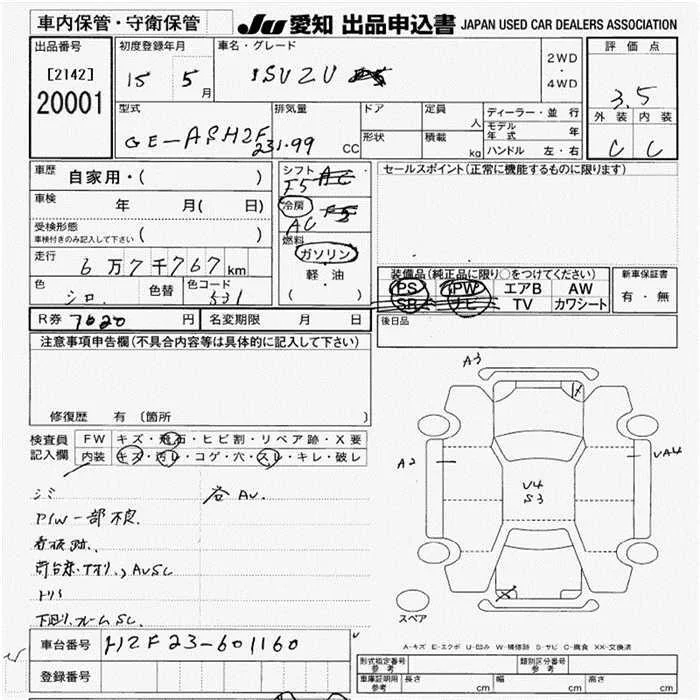 車内保管・守衛保管
JU 愛知 出品申込書 JAPAN USED CAR DEALERS ASSOCIATION
出品番号
[2142]
20001
初度登録年月
15 5 月
車名・グレード
ISUZU
2WD
・
4WD
評価点
3.5
外装 内装
C C
型式
GE-ASH2F
231.99
排気量
CC
ドア
形状
定員
人
積載
kg
ディーラー・並行
モデル年式 年
ハンドル 左・右
車歴
自家用・( )
車検
年 月( 日)
受検形態
車検付きのみ記入して下さい ( )
走行
6万7千767km
色
シロ
色替
色コード
531
シフト
F5
冷房
AC
燃料
ガソリン
軽・油
( )
セールスポイント(正常に機能するものに限ります)
装備品(純正品に限り○をつけてください)
PS PW エアB AW
SR ナビ TV カワシート
新車保証書
有・無
R券 7620 円
名変期限 月 日
後日品
注意事項申告欄(不具合内容等は具体的に記入して下さい)
修復歴 有 〔箇所 〕
検査員
記入欄
FW キズ・飛石・ヒビ割・リペア跡・X要
内装 キズ・汚レ・コゲ・穴・スレ・キレ・破レ
シミ
P/W一部不良
看板跡
A3
X
A2
UA4
U4
S3
X
スペア
A-キズ E-エクボ U-凹み W-補修跡 S-サビ C-腐食 XX-交換済
車台番号
H2F23-601160
登録番号
形式指定番号
参考
類別区分番号
参考
車庫証明用
参考
長さ cm 幅 cm 高さ cm